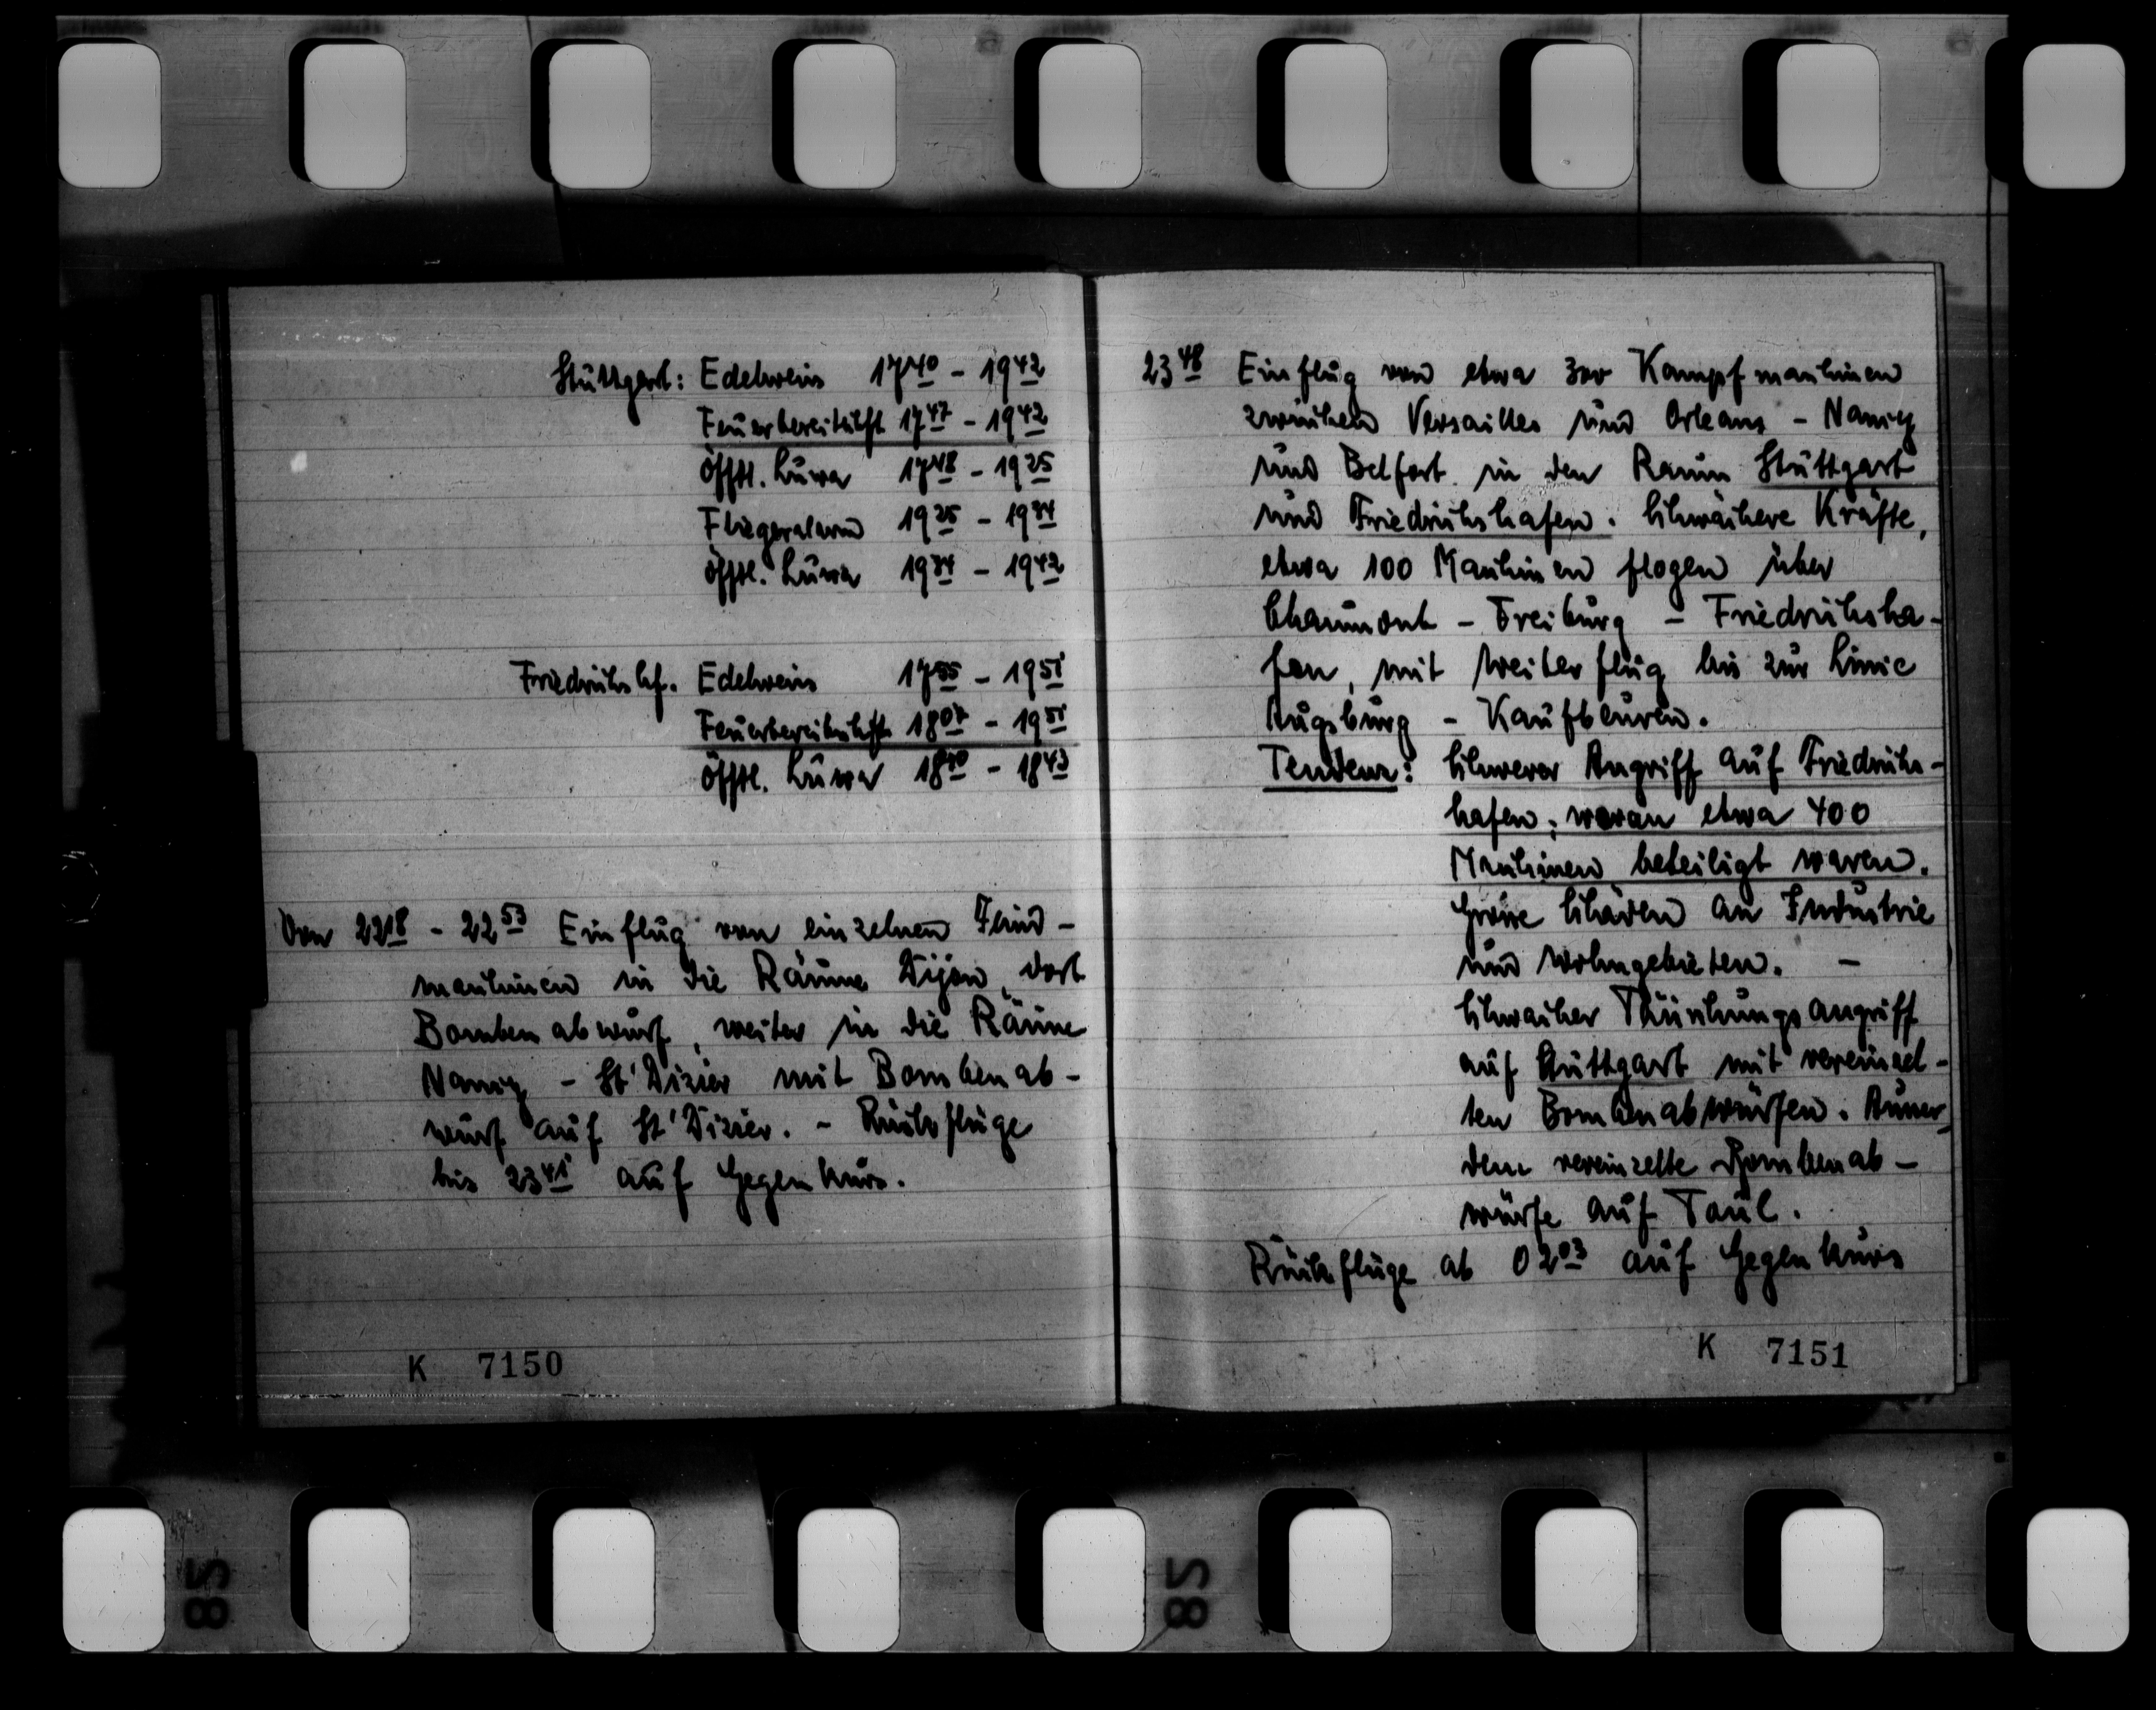 Stuttgart: Edelweiss 17⁴⁰ - 19⁴²
Feuerbereitschft 17⁴⁷ - 19⁴²
Öfftl. Luwa 17⁴⁸ - 19²⁵
Fliegeralarm 19²⁵ - 19³⁴
Öfftl. Luwa 19³⁴ - 19⁴²
Friedrichshf. Edelweiss 17⁵⁵ - 19⁵¹
Feuerbereitschft 18⁰⁷ - 19⁵¹
Öfftl. Luwa 18⁴⁰ - 18⁴³
Von 22¹⁸ - 22⁵³ Einflug von einzelnen Feind-
maschinen in die Räume Dijon, dort
Bombenabwurf, weiter in die Räume
Nancy - St' Dizier mit Bombenab-
wurf auf St' Dizier. - Rückflüge
bis 23⁴¹ auf Gegenkurs.
K 7150
23⁴⁸ Einflug von etwa 300 Kampfmaschinen
zwischen Versailles und Orleans - Nancy
und Belfort in den Raum Stuttgart
und Friedrichshafen. Schwächere Kräfte,
etwa 100 Maschinen flogen über
Chaumont - Freiburg - Friedrichsha-
fen, mit Weiterflug bis zur Linie
Augsburg - Kaufbeuren.
Tendenz: Schwerer Angriff auf Friedrichs-
hafen; woran etwa 400
Maschinen beteiligt waren.
Grosse Schäden an Industrie
und Wohngebieten. -
Schwacher Täuschungsangriff
auf Stuttgart mit vereinzel-
ten Bombenabwürfen. Ausser-
dem vereinzelte Bombenab-
würfe auf Toul.
Rückflüge ab 02⁰³ auf Gegenkurs
K 7151
28
28